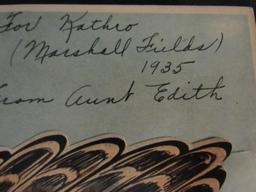 For Kathro
(Marshall Fields)
1935
From Aunt Edith